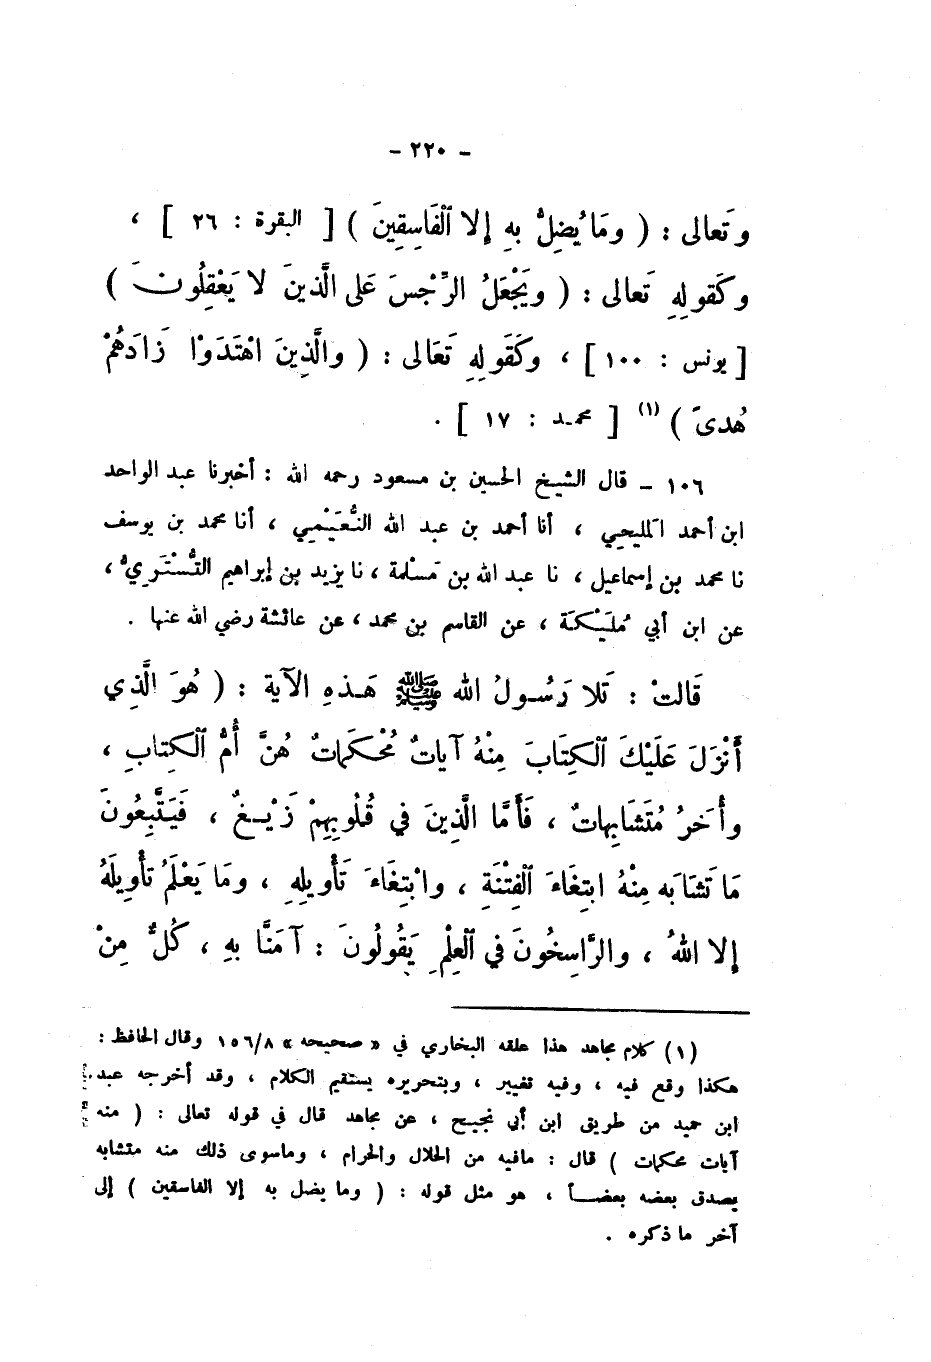 - ٢٢٠ -
وتَعالى : ( ومَا يُضِلُّ بهِ إلا الْفَاسِقِينَ ) [ البقرة : ٢٦ ] ،
وكَقولِهِ تَعالى : ( ويَجْعَلُ الرِّجْسَ عَلى الَّذينَ لا يَعْقِلُونَ )
[ يونس : ١٠٠ ] ، وكَقَولِهِ تَعَالى : ( والَّذِينَ اهْتَدَوْا زَادَهُمْ
هُدىً ) (١) [ محمد : ١٧ ] .
١٠٦ - قال الشيخ الحسين بن مسعود رحمه الله : أخبرنا عبد الواحد
ابن أحمد المليحي ، أنا أحمد بن عبد الله النُّعَيْمي ، أنا محمد بن يوسف
نا محمد بن إسماعيل ، نا عبد الله بن مَسْلمة ، نا يزيد بن إبراهيم التُّسْتَرِيُّ ،
عن ابن أبي مُلَيْكة ، عن القاسم بن محمد ، عن عائشة رضي الله عنها .
قَالتْ : تَلا رَسُولُ الله ﷺ هَذهِ الآية : ( هُوَ الَّذِي
أَنْزَلَ عَلَيْكَ الْكِتَابَ مِنْهُ آيَاتٌ مُحْكَمَاتٌ هُنَّ أُمُّ الْكِتابِ ،
وأُخَرُ مُتَشَابِهاتٌ ، فَأَمَّا الَّذِينَ في قُلُوبِهِمْ زَيْغٌ ، فَيَتَّبِعُونَ
مَا تَشَابَه مِنْهُ ابتِغَاءَ الْفِتْنَةِ ، وابْتِغَاءَ تَأْويلِهِ ، ومَا يَعْلَمُ تأْويلَهُ
إلا اللهُ ، والرَّاسِخُونَ في الْعِلْمِ يَقُولُونَ : آمَنَّا بهِ ، كُلٌّ مِنْ
(١) كلام مجاهد هذا علقه البخاري في « صحيحه » ١٥٦/٨ وقال الحافظ :
هكذا وقع فيه ، وفيه تغيير ، وبتحريره يستقيم الكلام ، وقد أخرجه عبد
ابن حميد من طريق ابن أبي نجيح ، عن مجاهد قال في قوله تعالى : ( منه
آيات محكمات ) قال : مافيه من الحلال والحرام ، وماسوى ذلك منه متشابه
يصدق بعضه بعضاً ، هو مثل قوله : ( وما يضل به إلا الفاسقين ) إلى
آخر ما ذكره .